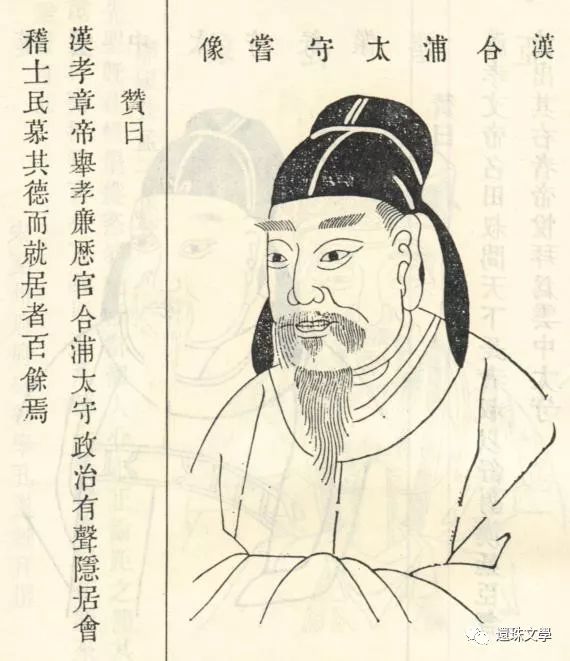 漢合浦太守嘗像
贊曰
漢孝章帝舉孝廉歷官合浦太守政治有聲隱居會
稽士民慕其德而就居者百餘焉
還珠文學